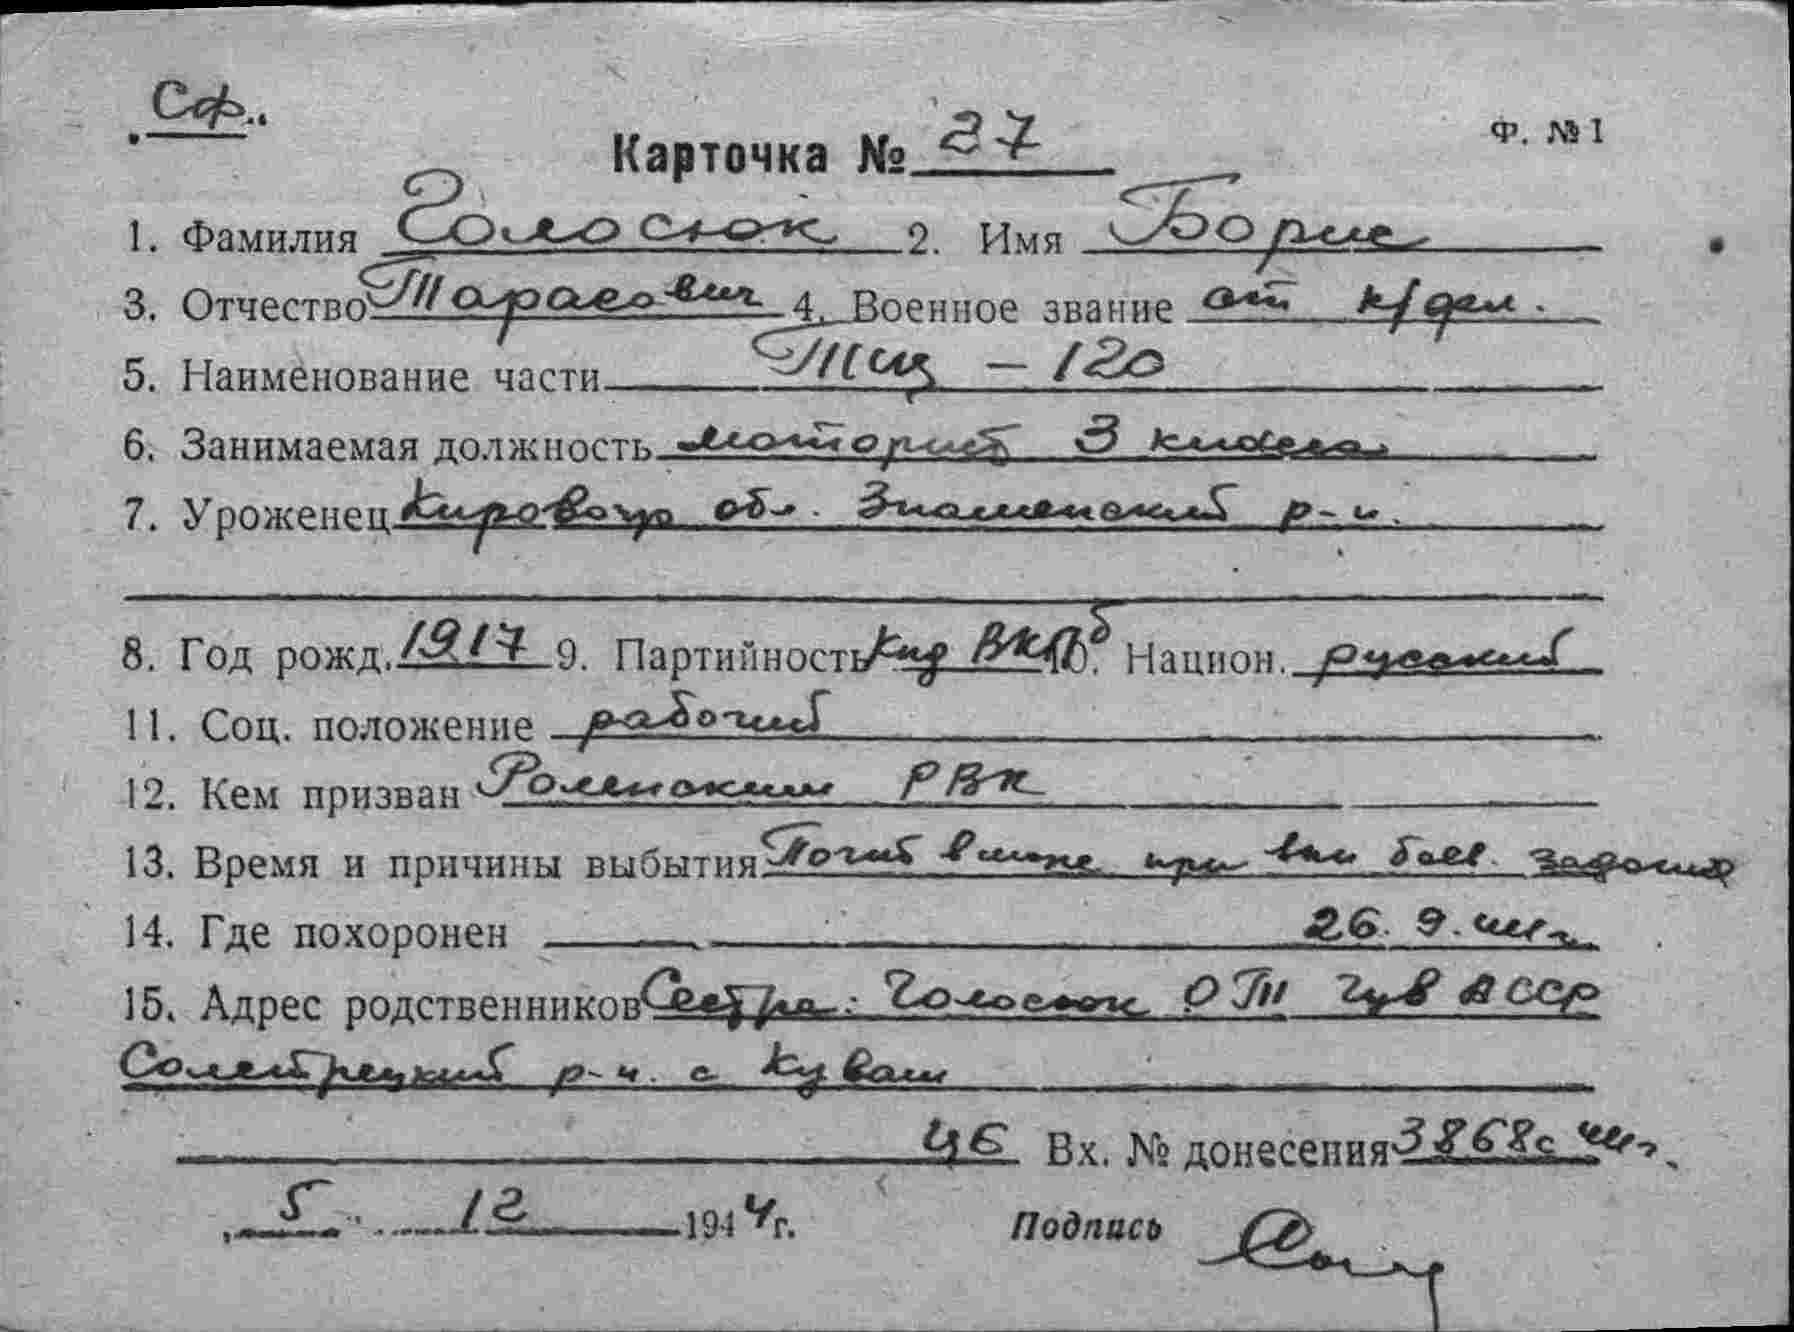 Сф.
Карточка № 27
Ф. № 1
1. Фамилия Голосюк 2. Имя Борис
3. Отчество Тарасович 4. Военное звание ст к/дел.
5. Наименование части Тщ - 120
6. Занимаемая должность моторист 3 класса
7. Уроженец Кировогр обл. Знаменский р-н.
8. Год рожд. 1917 9. Партийность Кнд ВКПб 10. Национ. русский
11. Соц. положение рабочий
12. Кем призван Роменским РВК
13. Время и причины выбытия Погиб в море при вып боев. задания
14. Где похоронен 26. 9. 44 г.
15. Адрес родственников Сестра: Голосюк О Т Чув АССР
р-н. с Куваш
46 Вх. № донесения 3868с 44 г.
5 12 1944 г. Подпись